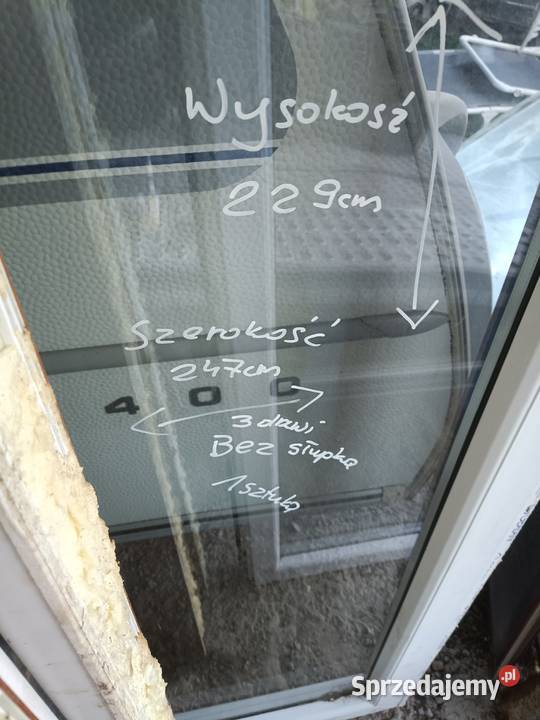 Wysokość
229cm
Szerokość
247cm
400
3 drzwi
Bez słupka
1 sztuka
Sprzedajemy.pl